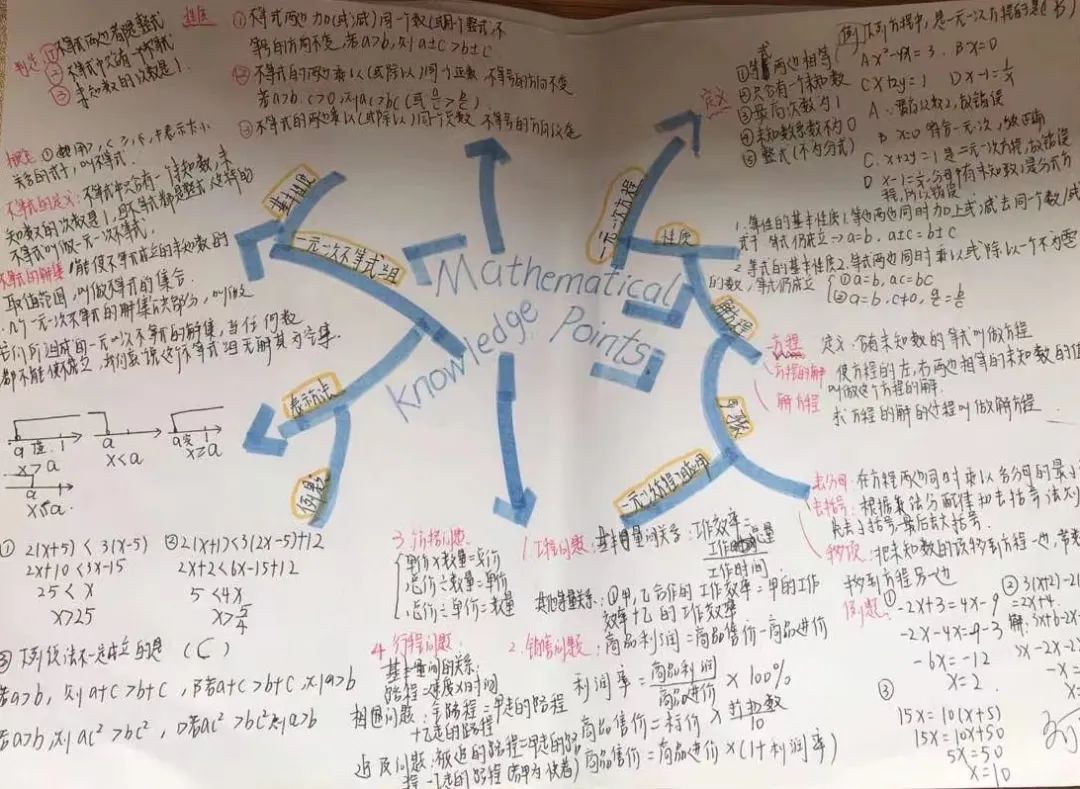 判定
①不等式两边都是整式
②不等式中只有一个未知数
③未知数的次数是1.
性质
①不等式两边加(或减)同一个数(或同一个整式),不
等号的方向不变,若a>b,则a±c>b±c
②不等式的两边乘以(或除以)同一个正数,不等号的方向不变
若a>b,c>0,则ac>bc(或a/c>b/c)
③不等式的两边乘以(或除以)同一个负数,不等号的方向改变
概念
①一般用>,<,≥,≤,≠表示大小
关系的式子,叫不等式.
不等式的定义:不等式中只含有一个未知数,未
知数的次数是1,且不等式都是整式,这样的
不等式叫做一元一次不等式.
不等式的解集
能使不等式成立的未知数的
取值范围,叫做不等式的集合.
几个一元一次不等式的解集的公共部分,叫做
它们所组成的一元一次不等式的解集,当任何数
都不能使不等式,我们就说这个不等式组无解
a 1
x>a
a
x<a
a 1
x≥a
a
x≤a
① 2(x+5)<3(x-5)
2x+10<3x-15
25<x
x>25
② 2(x+1)<3(2x-5)+12
2x+2<6x-15+12
5<4x
x>5/4
③下列说法不一定成立的是 (C)
若a>b,则a+c>b+c,
B若a+c>b+c,则a>b
若a>b,则ac²>bc²,
D若ac²>bc²则a>b
基本性质
一元一次不等式组
表示方法
例题
Mathematical
Knowledge Points
一元一次方程
性质
解方程
步骤
一元一次方程应用
定义
①等式两边相等
②只含有一个未知数
③最高次数为1
④未知数系数不为0
⑤整式(不为分式)
例 下列方程中,是一元一次方程的是(B)
A x²-4x=3. B x=0
C x+2y=1 D x-1=1/x
A:最高次数2,故错误
B x=0 符合一元一次,故正确
C. x+2y=1是二元一次方程,故错误
D x-1=1/x,分母中有未知数,是分式方
程,所以错误
1.等性的基本性质1.等式两边同时加上(或)减去同一个数/或
式子 等式仍成立→a=b.a±c=b±c
2.等式的基本性质2.等式两边同时乘以或除以一个不为零
的数,等式仍成立 ①a=b,ac=bc
②a=b,c≠0,a/c=b/c
方程 定义:含有未知数的等式叫做方程
方程的解 使方程的左、右两边相等的未知数的值
叫做这个方程的解.
解方程 求方程的解的过程叫做解方程
去分母:在方程两边同时乘以各分母的最小
去括号:根据乘法分配律和去括号法则
先去小括号,最后去大括号.
移项:把未知数的项移到方程一边,常数
移到方程另一边
例题:
① -2x+3=4x-9
-2x-4x=-9-3
-6x=-12
x=2.
② 3(x+2)-2(
=2x+4.
解:3x+6-2x
3x-2x-2
-x=
x=
③
15x=10(x+5)
15x=10x+50
5x=50
x=10
1.工程问题:基本量间关系:工作效率=
工作总量
工作时间
其他等量关系:①甲,乙合作的工作效率=甲的工作
效率+乙的工作效率
2.销售问题:商品利润=商品售价-商品进价
利润率=商品利润/商品进价×100%
商品售价=标价×折扣数/10
商品售价=商品进价×(1+利润率)
3.价格问题.
单价×数量=总价
总价÷数量=单价
总价÷单价=数量
4.行程问题
基本量间的关系:
路程=速度×时间
相遇问题:全路程=甲走的路程
+乙走的路程
追及问题:被追的路程=甲走的路
程-乙走的路程(若甲为快者)